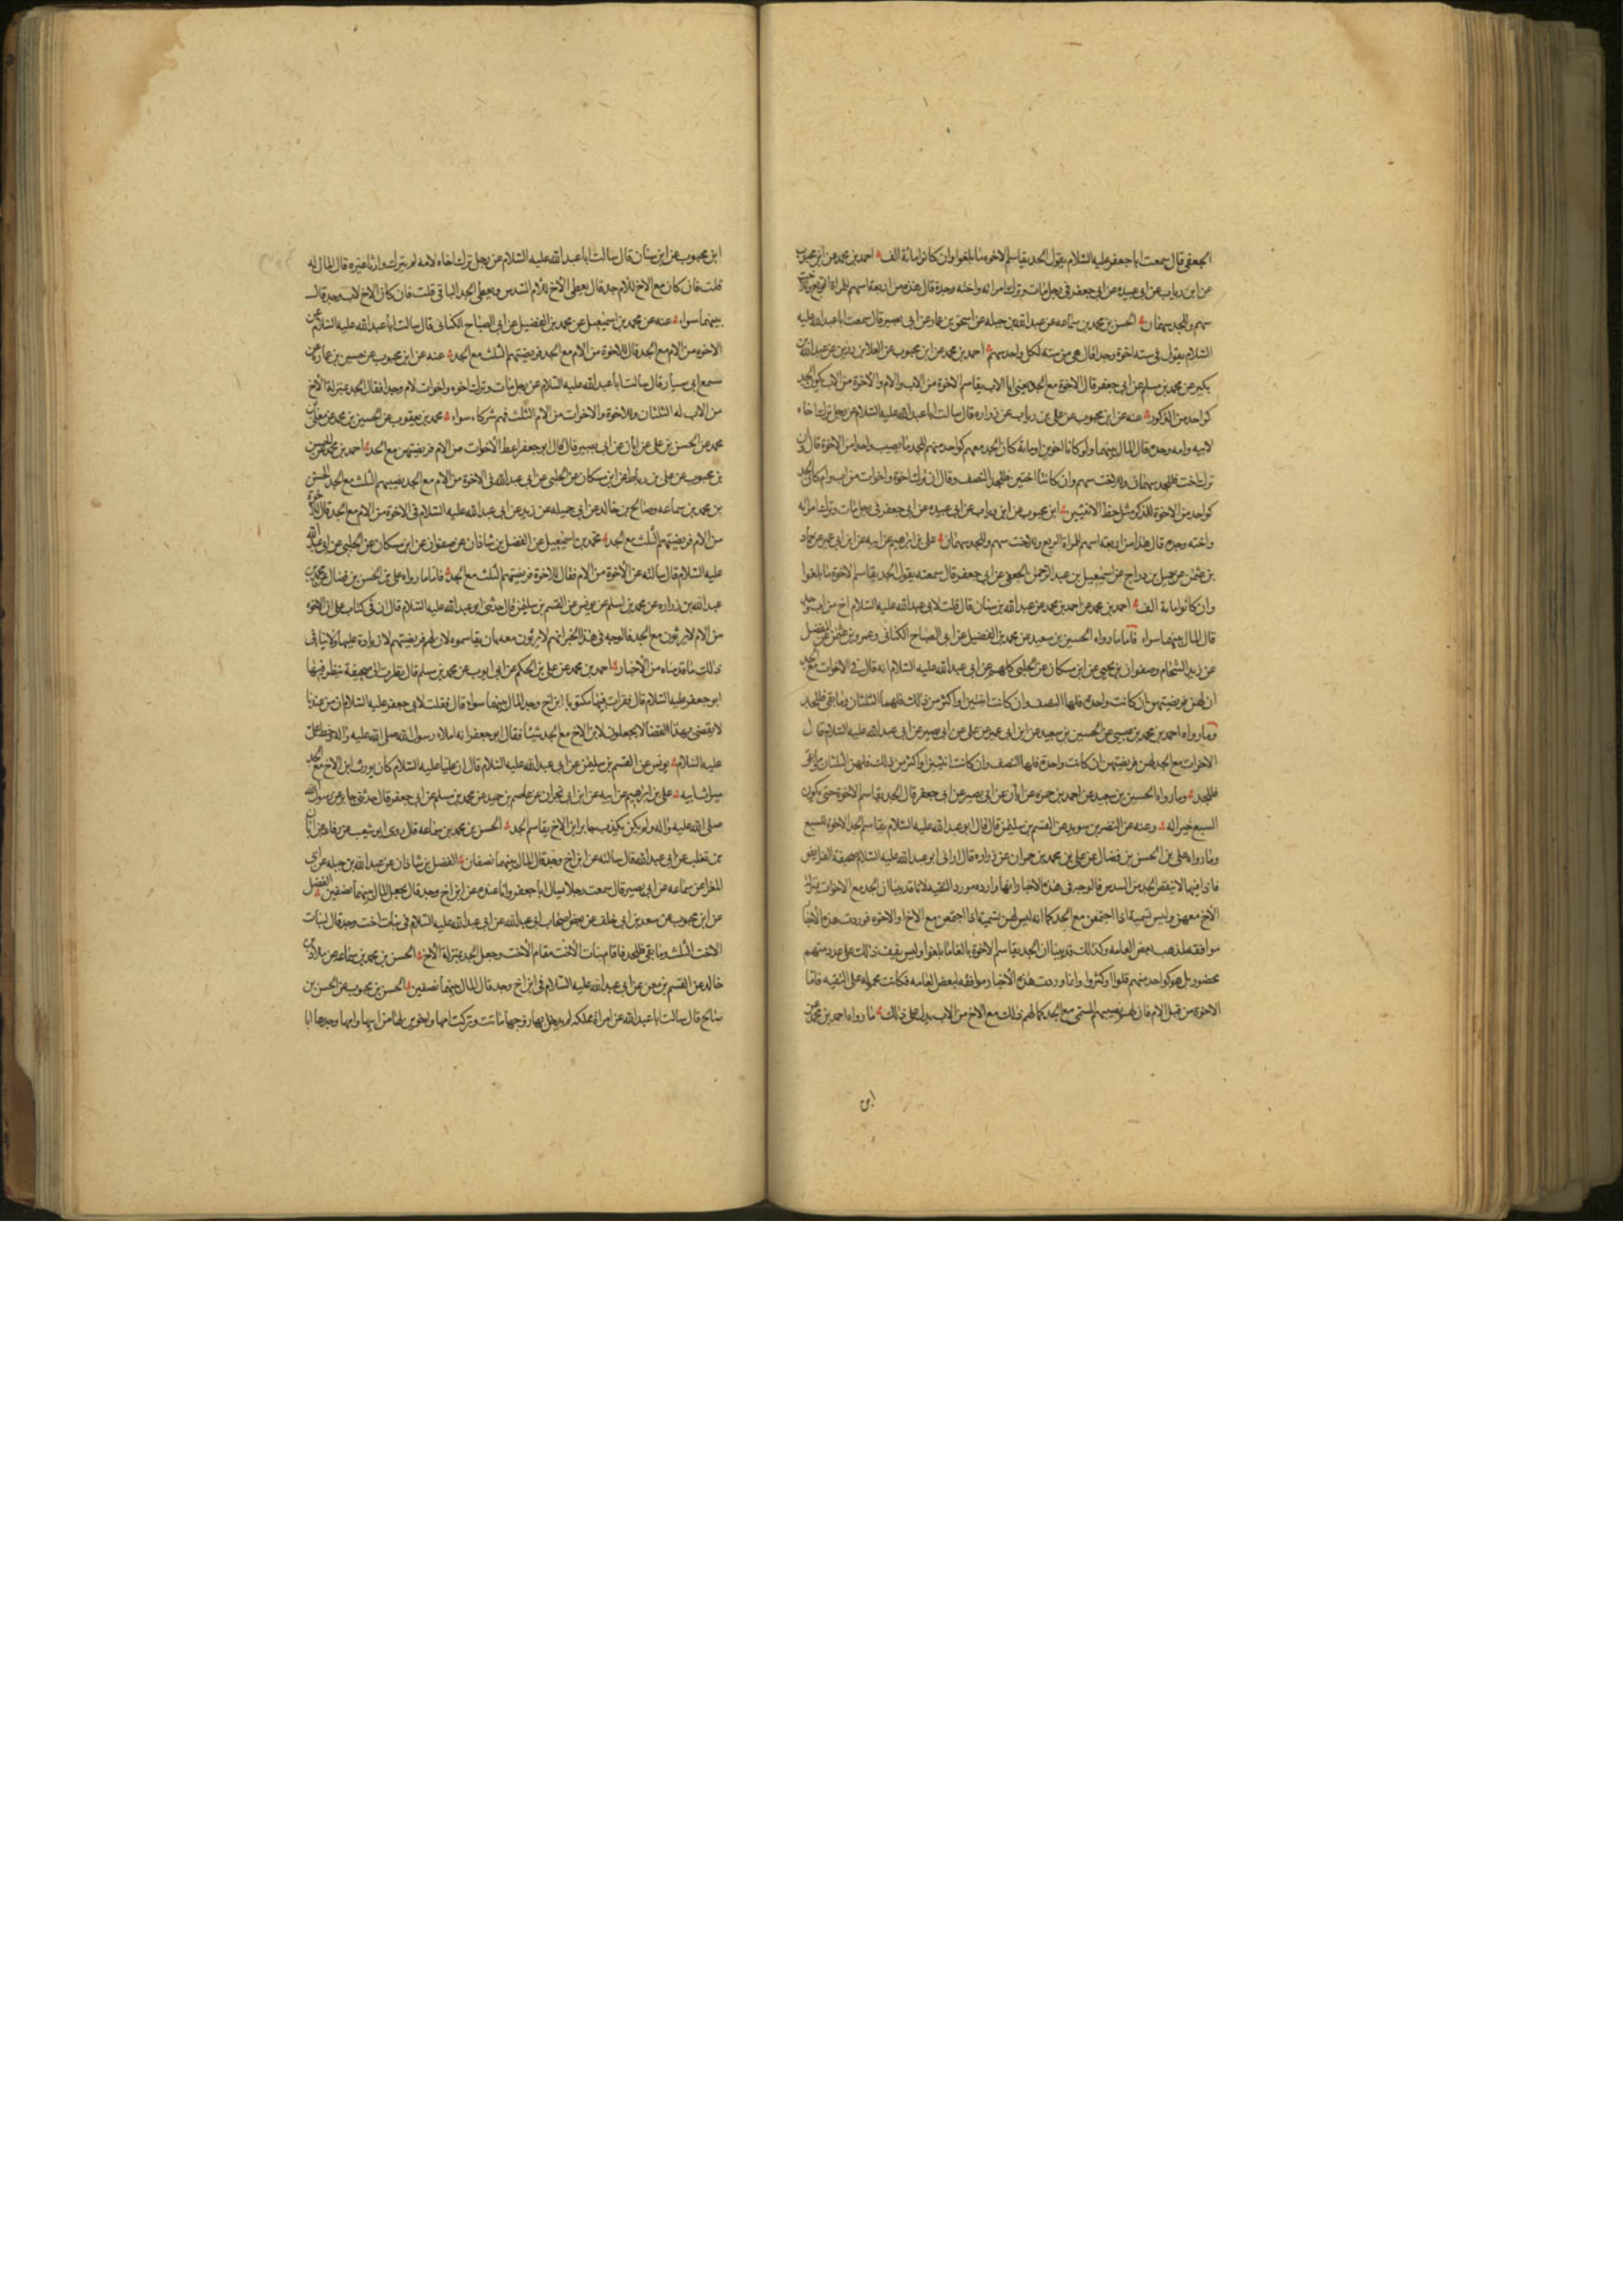 الجعفي قال سمعت ابا جعفر عليه السلام يقول الجد يقاسم الاخوة ما بلغوا وان كانوا مائة الف احمد بن محمد عن ابن محبوب
عن ابن رياب عن ابي عبيده عن ابي جعفر في رجل مات وترك امراته واخته وجده قال هذه من اربعة اسهم للمراة الربع وللاخت
سهم وللجد سهمان الحسن بن محمد بن سماعه عن عبد الله بن جبله عن اسحق بن عمار عن ابي بصير قال سمعت ابا عبد الله عليه
السلام يقول في ستة اخوة وجد قال هي من سته لكل واحد سهم احمد بن محمد عن ابن محبوب عن العلا بن رزين عن عبد الله بن
بكير عن محمد بن مسلم عن ابي جعفر قال الاخوة مع الجد يعني ابا الاب يقاسم الاخوة من الاب والام والاخوة من الاب يكون الجد
كواحد من الذكور عنه عن ابن محبوب عن علي بن رياب عن زراره قال سالت ابا عبد الله عليه السلام عن رجل ترك اخاه
لابيه وامه وجده قال المال بينهما ولو كانا اخوين او مائة كان الجد معهم كواحد منهم للجد ما يصيب واحدا من الاخوة قال وان
ترك اخت فللجد سهمان وللاخت سهم وان كانتا اختين فللجد النصف وقال ان ترك اخوة واخوات من اب وام كان الجد
كواحد من الاخوة للذكر مثل حظ الانثيين ابن محبوب عن ابن رياب عن ابي عبيده عن ابي جعفر في رجل مات وترك امراته
واخته وجده قال هذا من اربعة اسهم للمراة الربع وللاخت سهم وللجد سهمان علي بن ابرهيم عن ابيه عن ابن ابي عمير عن حماد
بن عثمن عن جميل بن دراج عن اسمعيل بن عبد الرحمن الجعفي عن ابي جعفر قال سمعته يقول الجد يقاسم الاخوة ما بلغوا
وان كانوا مائة الف احمد بن محمد عن احمد بن محمد عن عبد الله بن سنان قال قلت لابي عبد الله عليه السلام اخ من اب وجد
قال المال بينهما سواء فاما ما رواه الحسين بن سعيد عن محمد بن الفضيل عن ابي الصباح الكناني وعمرو بن عثمن عن المفضل
عن زيد الشحام وصفوان بن يحيى عن ابن مسكان عن الحلبي كلهم عن ابي عبد الله عليه السلام انه قال في الاخوات مع الجد
ان لهن فريضتهن ان كانت واحدة فلها النصف وان كانت اثنتين او اكثر من ذلك فلهما الثلثان وما بقي فللجد
وما رواه احمد بن محمد بن عيسى عن الحسين بن سعيد عن ابن ابي عمير عن علي عن ابي بصير عن ابي عبد الله عليه السلام قال
الاخوات مع الجد لهن فريضتهن ان كانت واحدة فلها النصف وان كانت اثنتين او اكثر من ذلك فلهن الثلثان وما بقي
فللجد وما رواه الحسين بن سعيد عن احمد بن حمزه عن ابان عن ابي بصير عن ابي جعفر قال الجد يقاسم الاخوة حتى يكون
السبع خيرا له وعنه عن النضر بن سويد عن القسم بن سليمن قال قال ابو عبد الله عليه السلام يقاسم الجد الاخوة السبع
وما رواه علي بن الحسن بن فضال عن علي بن محمد بن حمران عن زراره قال اراني ابو عبد الله عليه السلام صحيفة الفرايض
فاذا فيها لا ينقص الجد من السدس فالوجه في هذه الاخبار انها وارده مورد التقيه لانا قد بينا ان الجد مع الاخوات بمنزلة
الاخ معهن وليس تسمية اذا اجتمعن مع الجد كما انه ليس لهن تسمية اذا اجتمعن مع الاخ او الاخوه فوردت هذه الاخبار
موافقه لمذهب بعض العامه وكذلك قد بينا ان الجد يقاسم الاخوة بالغا ما بلغوا وليس يقف ذلك على عدد منهم
محصور بل هو كواحد منهم قلوا او كثروا وانما وردت هذه الاخبار موافقه لبعض العامه فكانت محموله على التقيه فاما
الاخوة من قبل الام فان لهم نصيبهم المسمى مع الجد كما لهم ذلك مع الاخ من الاب يدل على ذلك ما رواه احمد بن محمد عن
ابن
ابن محبوب عن ابن سنان قال سالت ابا عبد الله عليه السلام عن رجل ترك اخاه لامه لم يترك وارثا غيره قال المال له
قلت فان كان مع الاخ للام جد قال يعطى الاخ للام السدس ويعطى الجد الباقي قلت فان كان الاخ لاب وجد قال
بينهما سواء عنه عن محمد بن اسمعيل عن محمد بن الفضيل عن ابي الصباح الكناني قال سالت ابا عبد الله عليه السلام عن
الاخوة من الام مع الجد قال للاخوة من الام مع الجد فريضتهم الثلث مع الجد عنه عن ابن محبوب عن حسين بن عماره عن
مسمع ابي سيار قال سالت ابا عبد الله عليه السلام عن رجل مات وترك اخوة واخوات لام وجدا فقال الجد بمنزلة الاخ
من الاب له الثلثان وللاخوة والاخوات من الام الثلث فهم شركاء سواء محمد بن يعقوب عن الحسين بن محمد عن معلى بن
محمد عن الحسن بن علي عن ابان عن ابي بصير قال قال ابو جعفر اعط الاخوات من الام فريضتهن مع الجد احمد بن محمد عن الحسن
بن محبوب عن علي بن رباط عن ابن مسكان عن الحلبي عن ابي عبد الله في الاخوة من الام مع الجد نصيبهم الثلث مع الجد الحسن
بن محمد بن سماعه وصالح بن خالد عن ابي جميله عن زيد عن ابي عبد الله عليه السلام في الاخوة من الام مع الجد قال للاخوة
من الام فريضتهم الثلث مع الجد محمد بن اسمعيل عن الفضل بن شاذان عن صفوان عن ابن مسكان عن الحلبي عن ابي عبد الله
عليه السلام قال سالته عن الاخوة من الام فقال للاخوة فريضتهم الثلث مع الجد فاما ما رواه علي بن الحسن بن فضال عن محمد بن
عبد الله بن زراره عن محمد بن اسلم عن يونس عن القسم بن سليمن قال حدثني ابو عبد الله عليه السلام قال ان في كتاب علي ان الاخوة
من الام لا يرثون مع الجد فالوجه في هذا الخبر انهم لا يرثون معه بان يقاسموه لان لهم فريضتهم لا زيادة عليها ولا ينافي
ذلك ما قدمناه من الاخبار احمد بن محمد عن علي بن الحكم عن ابي ايوب عن محمد بن مسلم قال نظرت الى صحيفة ينظر فيها
ابو جعفر عليه السلام قال فقرات فيها مكتوبا ابن اخ وجد المال بينهما سواء قال فقلت لابي جعفر عليه السلام ان من عندنا
لا يقضى بهذا القضا لا يجعلون لابن الاخ مع الجد شيئا فقال ابو جعفر انه املاء رسول الله صلى الله عليه واله وخط علي
عليه السلام يونس عن القسم بن سليمن عن ابي عبد الله عليه السلام قال ان عليا عليه السلام كان يورث ابن الاخ مع الجد
ميراث ابيه علي بن ابرهيم عن ابيه عن ابن ابي نجران عن عاصم بن حميد عن محمد بن مسلم عن ابي جعفر قال حدثني جابر عن رسول الله
صلى الله عليه واله ولم يكن يكذب جابر ابن الاخ يقاسم الجد الحسن بن محمد بن سماعه قال روى ابو شعيب عن رفاعه عن ابان
بن تغلب عن ابي عبد الله قال سالته عن ابن اخ وجد قال المال بينهما نصفان الفضل بن شاذان عن عبد الله بن جبله عن ابي
المغرا عن سماعه عن ابي بصير قال سمعت رجلا يسال ابا جعفر وانا عنده عن ابن اخ وجد قال يجعل المال بينهما نصفين الفضل
عن ابن محبوب عن سعد بن ابي خلف عن بعض اصحاب ابي عبد الله عن ابي عبد الله عليه السلام في بنات اخت وجد قال لبنات
الاخت الثلث وما بقي فللجد فاقام بنات الاخت مقام الاخت وجعل الجد بمنزلة الاخ الحسن بن محمد بن سماعه عن
خالد عن القسم بن معن عن ابي عبد الله عليه السلام في ابن اخ وجد قال المال بينهما نصفين الحسن بن محبوب عن الحسن بن
صالح قال سالت ابا عبد الله عن امراة مملكه لم يدخل بها زوجها ماتت وتركت امها واخوين لها من ابيها وامها وجدها ابا